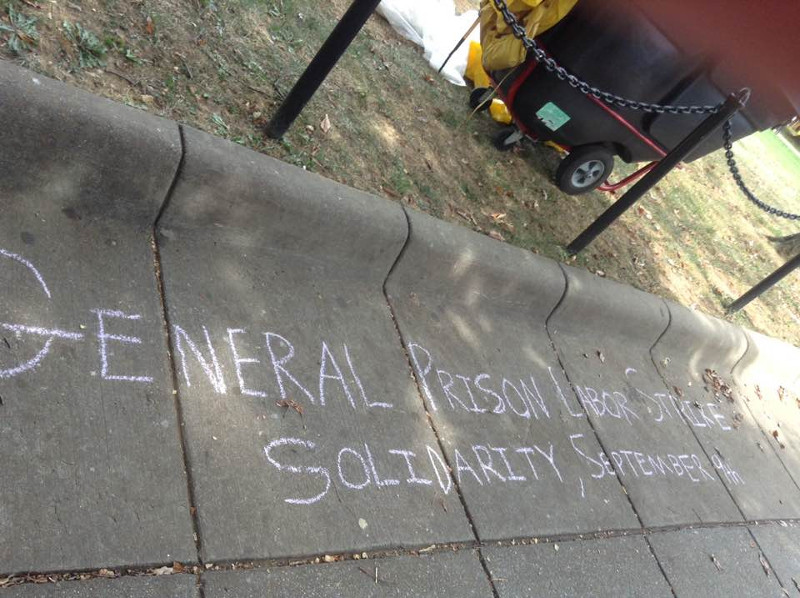 GENERAL PRISON LABOR STRIKE
SOLIDARITY, SEPTEMBER 9TH